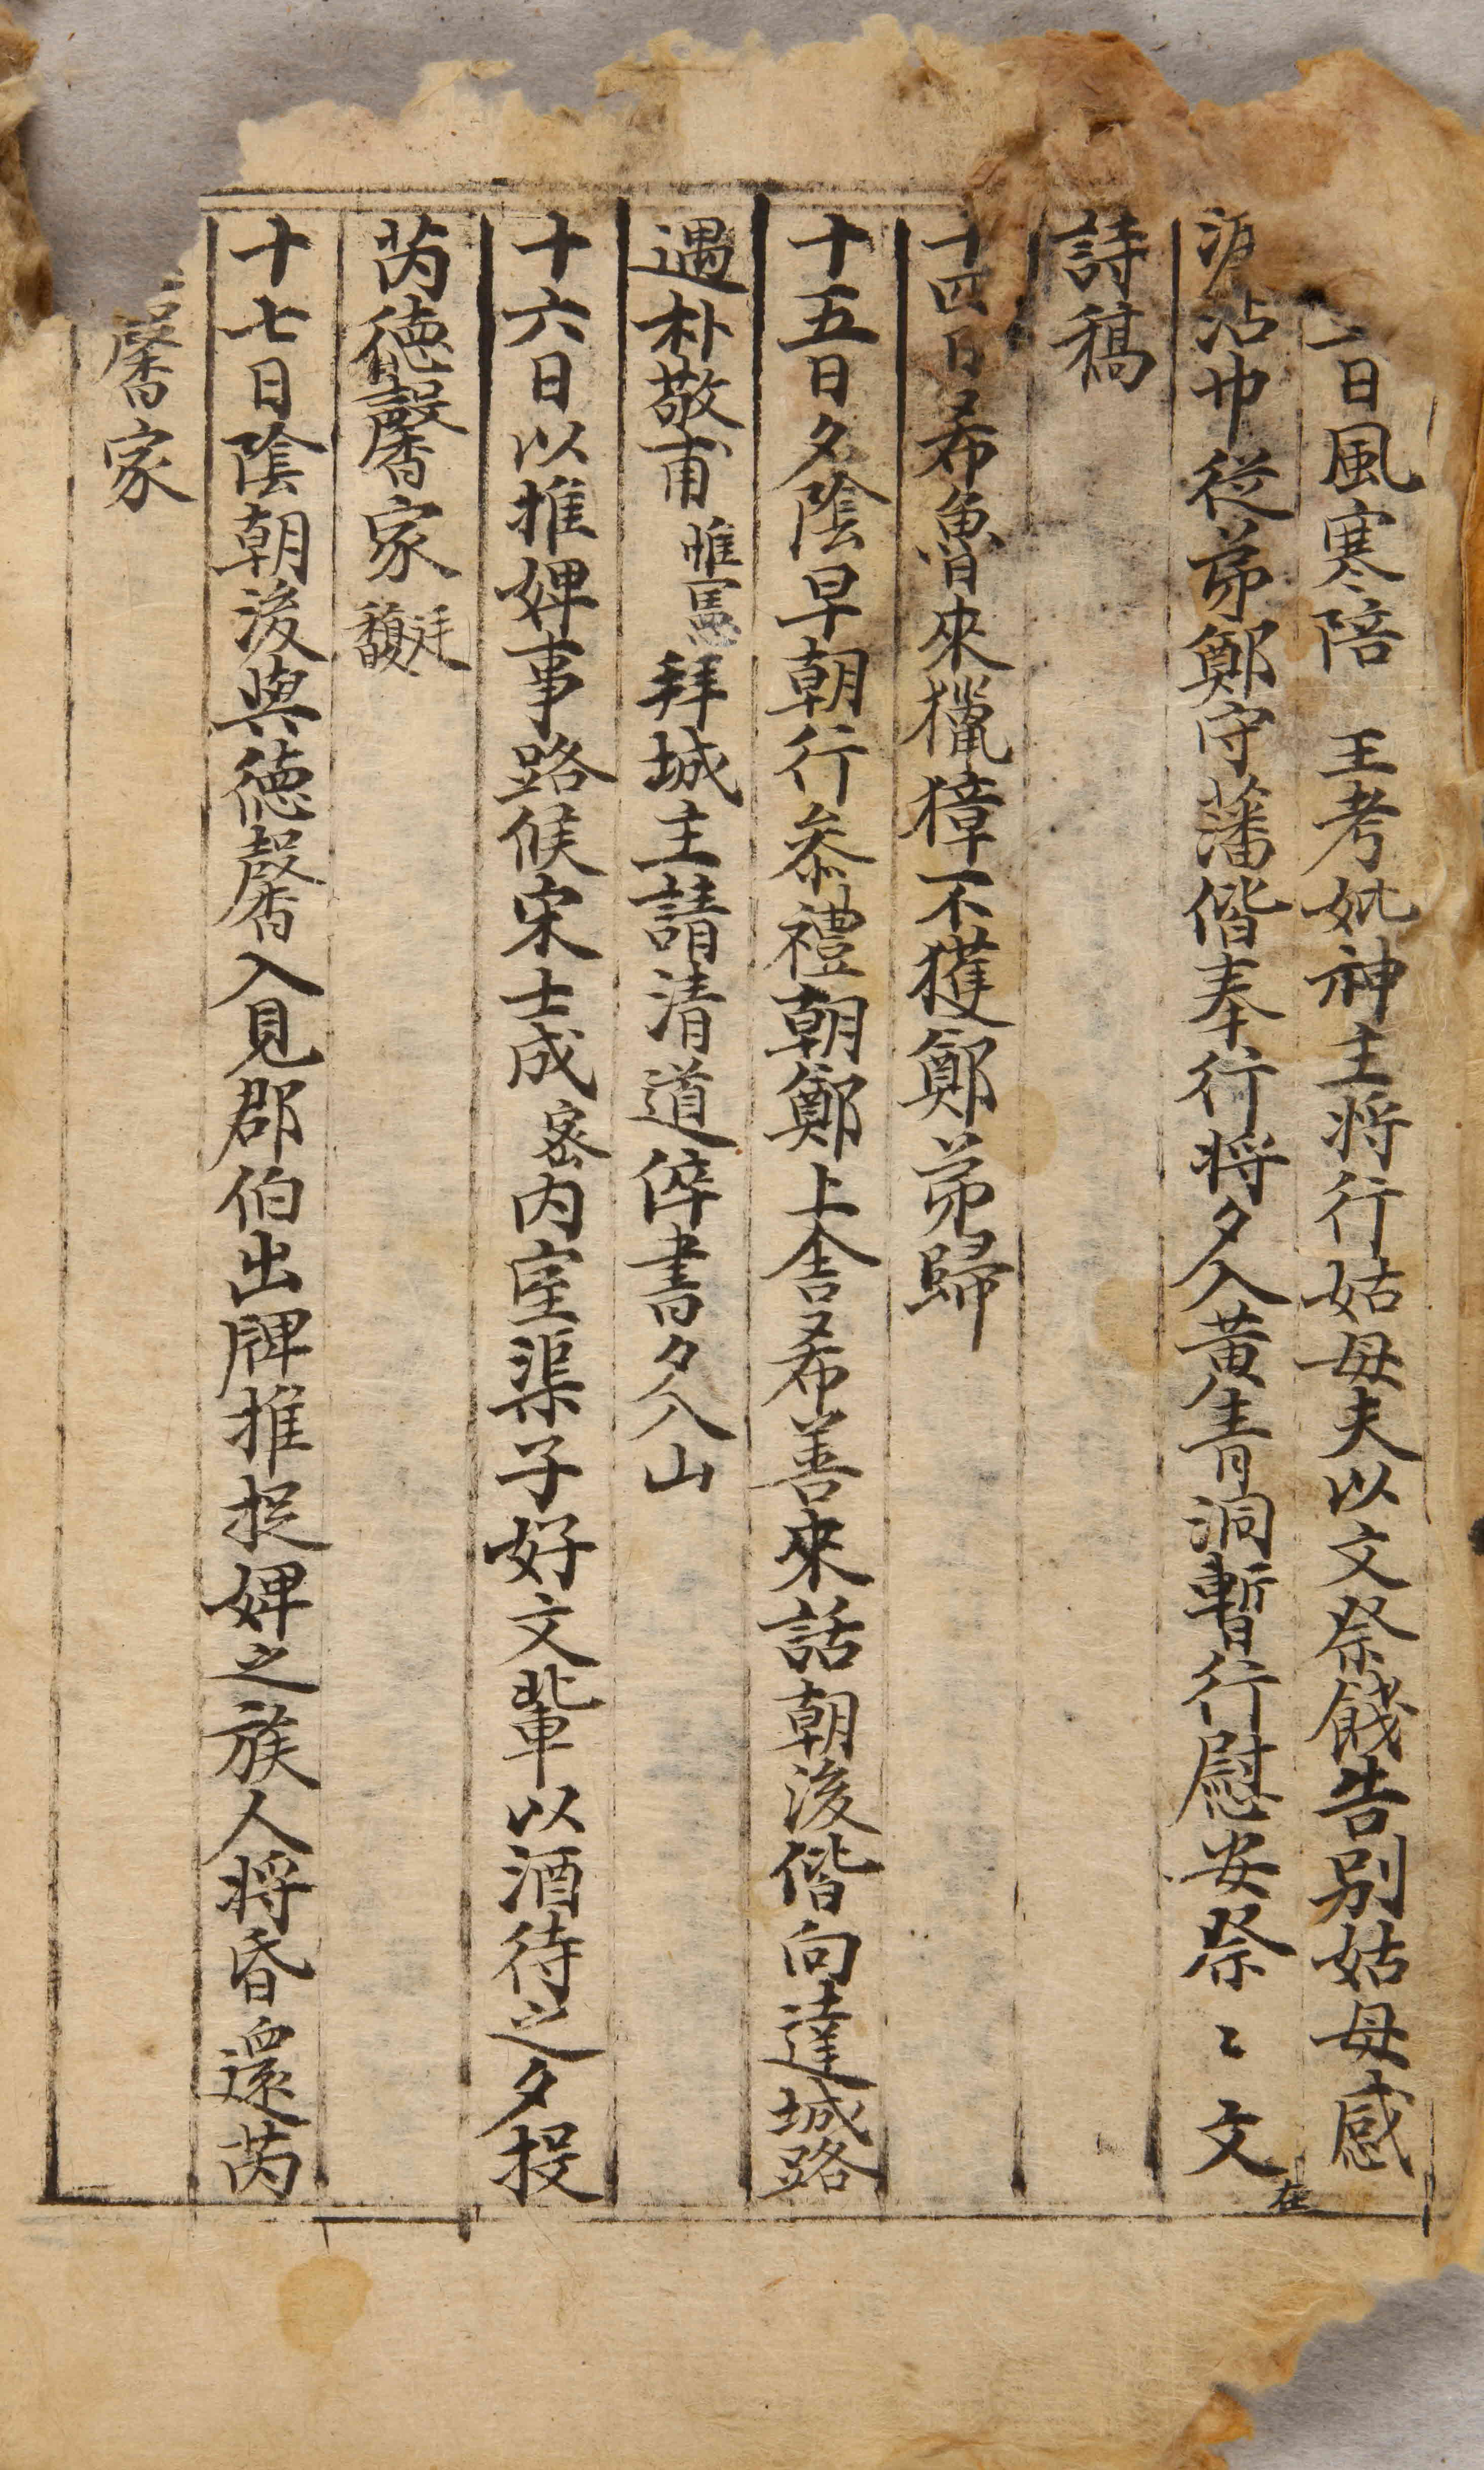 日風寒陪 王考妣神主将行姑母夫以文祭餞告別姑母感
沾巾從弟鄭守藩偕奉行将夕入黃青洞暫行慰安祭〻文在
詩稿
十四日希魯來獵獐不獲鄭弟歸
十五日夕陰早朝行叅禮朝鄭上舍希善來話朝後偕向達城路
遇朴敬甫惟寯拜城主請清道倅書夕入山
十六日以推婢事路候宋士成密內室渠子好文輩以酒待之夕投
芮德馨家馥廷
十七日陰朝後與德馨入見郡伯出牌推捉婢之族人将昏還芮
馨家